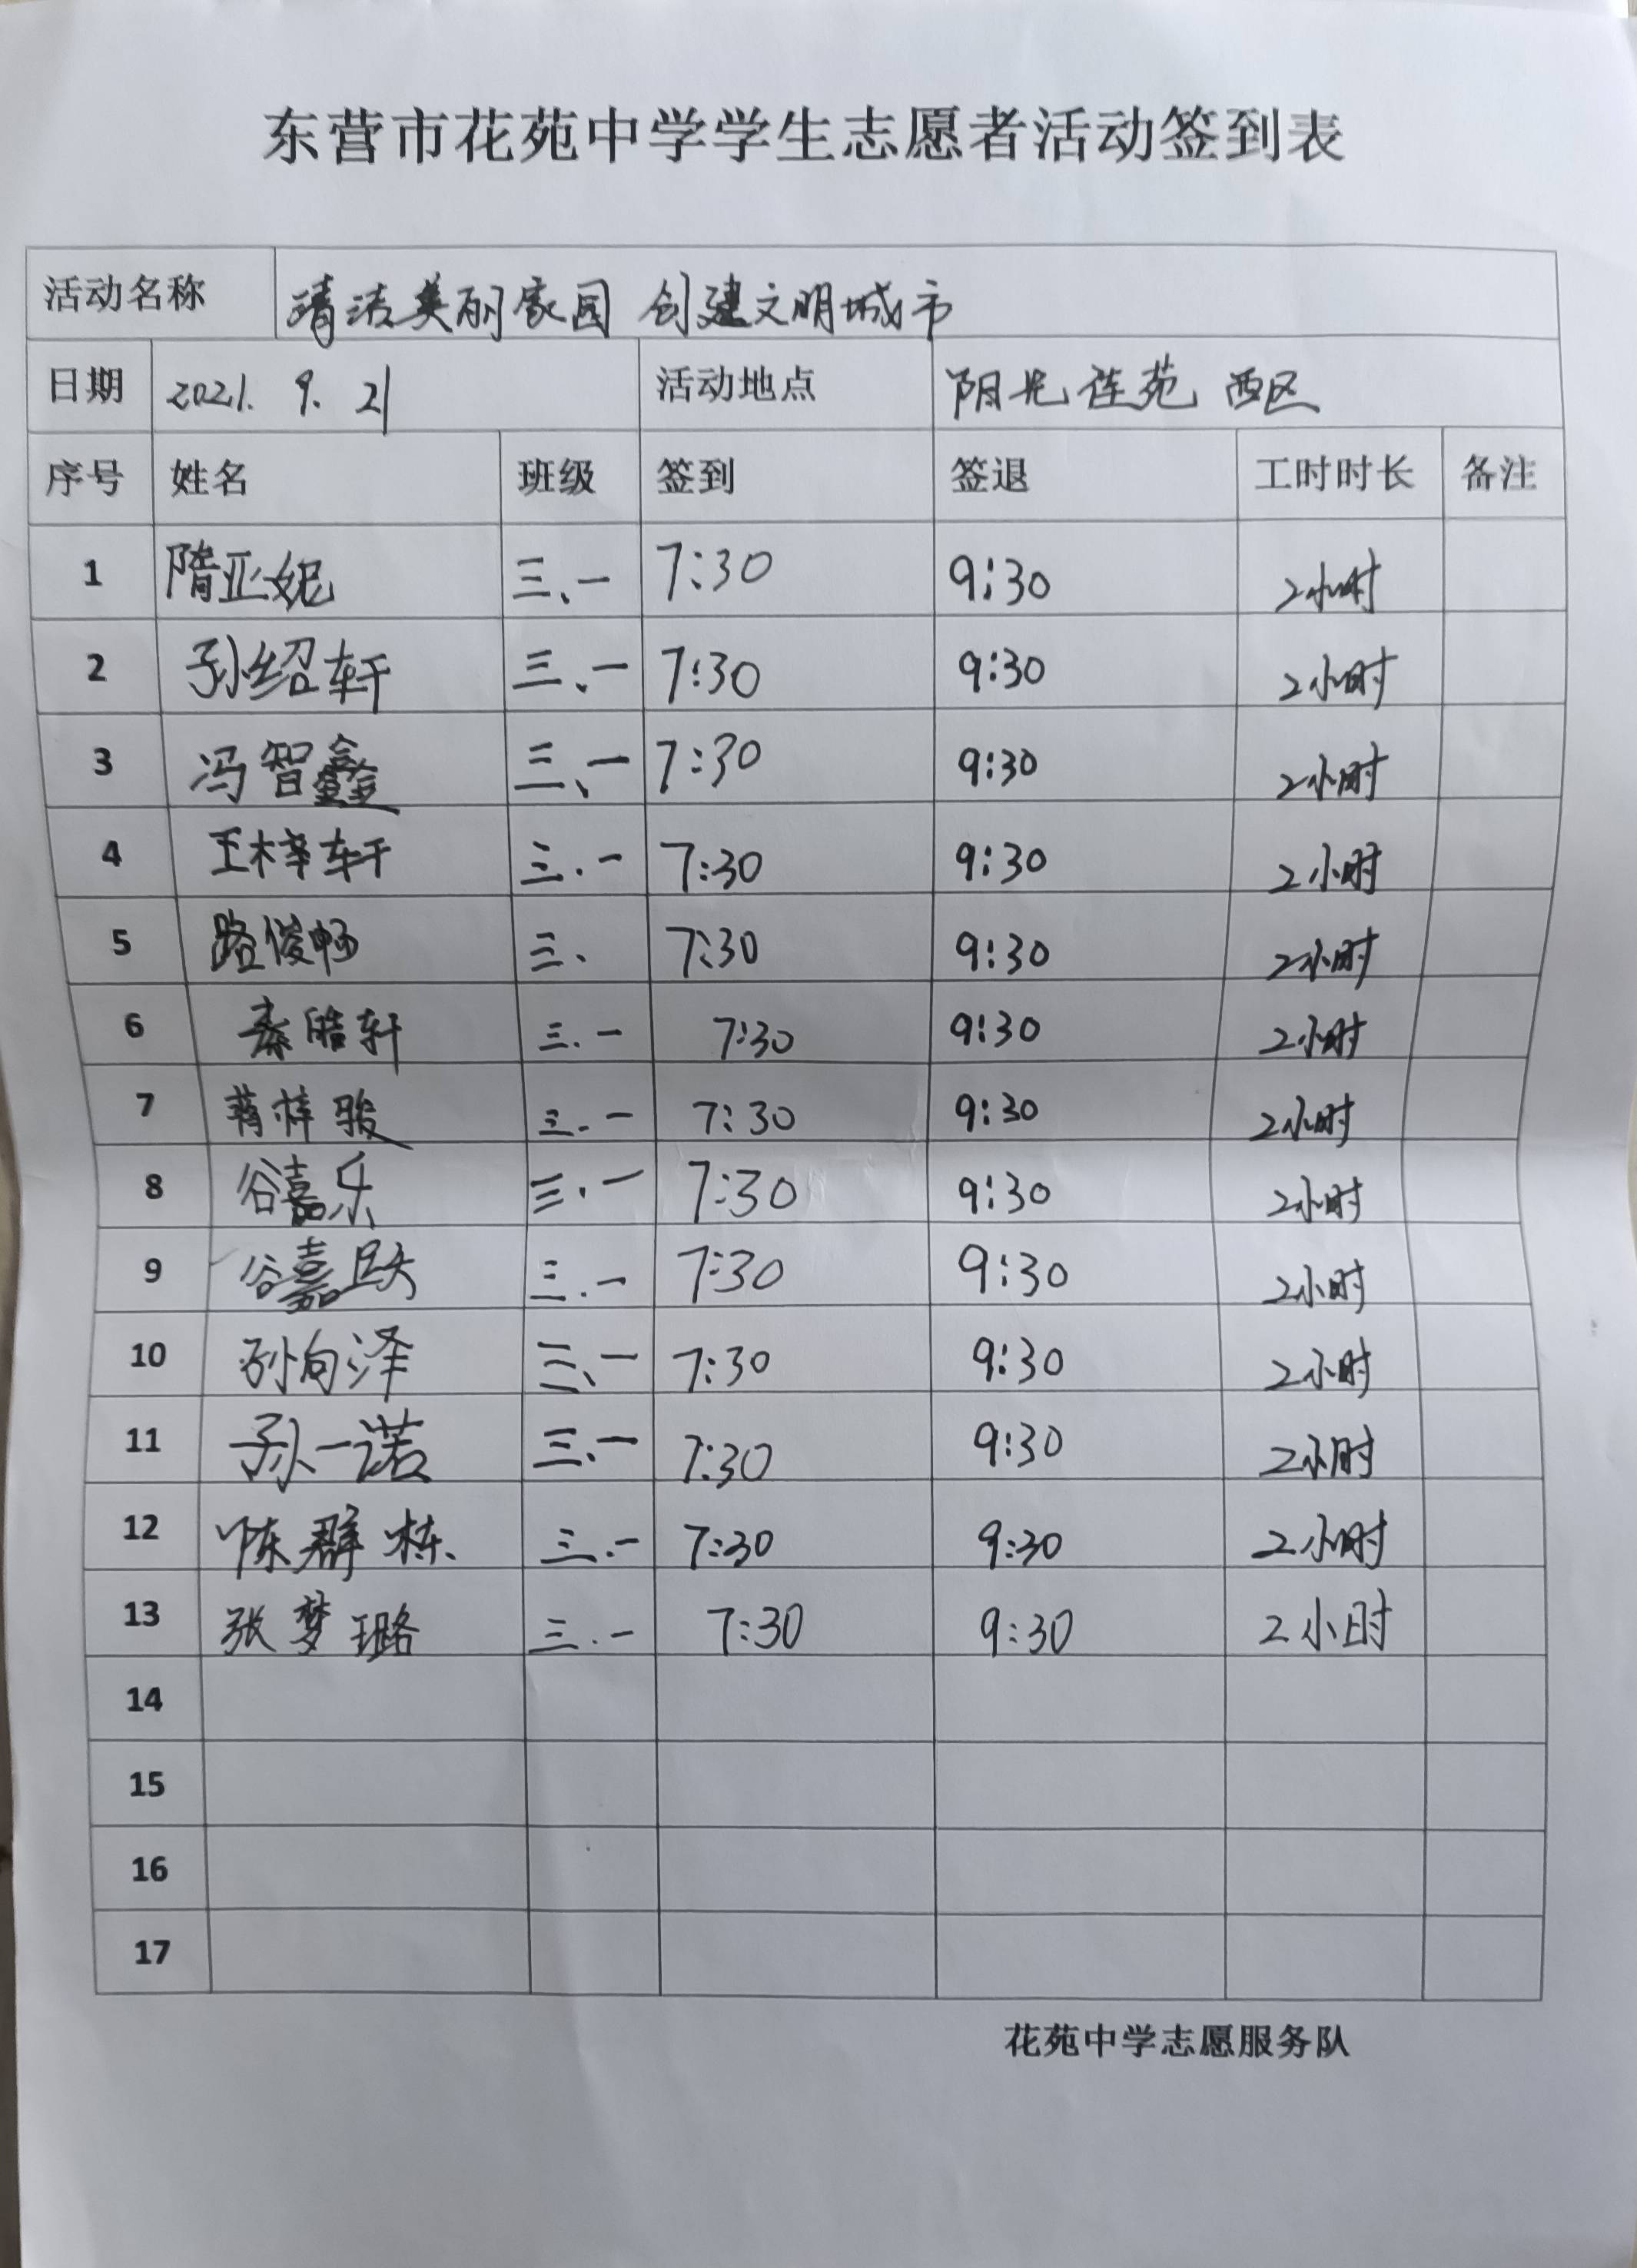 东营市花苑中学学生志愿者活动签到表
活动名称 清洁美丽家园 创建文明城市
日期 2021.9.21 活动地点 阳光莲苑 西区
序号 姓名 班级 签到 签退 工时时长 备注
1 隋亚妮 三、一 7:30 9:30 2小时
2 孙绍轩 三、一 7:30 9:30 2小时
3 冯智鑫 三、一 7:30 9:30 2小时
4 王梓轩 三.一 7:30 9:30 2小时
5 路俊畅 三、 7:30 9:30 2小时
6 秦皓轩 三.一 7:30 9:30 2小时
7 蒋梓骏 三.一 7:30 9:30 2小时
8 谷嘉乐 三.一 7:30 9:30 2小时
9 谷嘉跃 三.一 7:30 9:30 2小时
10 孙向泽 三、一 7:30 9:30 2小时
11 孙一诺 三、一 7:30 9:30 2小时
12 陈群栋 三.一 7:30 9:30 2小时
13 张梦璐 三.一 7:30 9:30 2小时
14
15
16
17
花苑中学志愿服务队